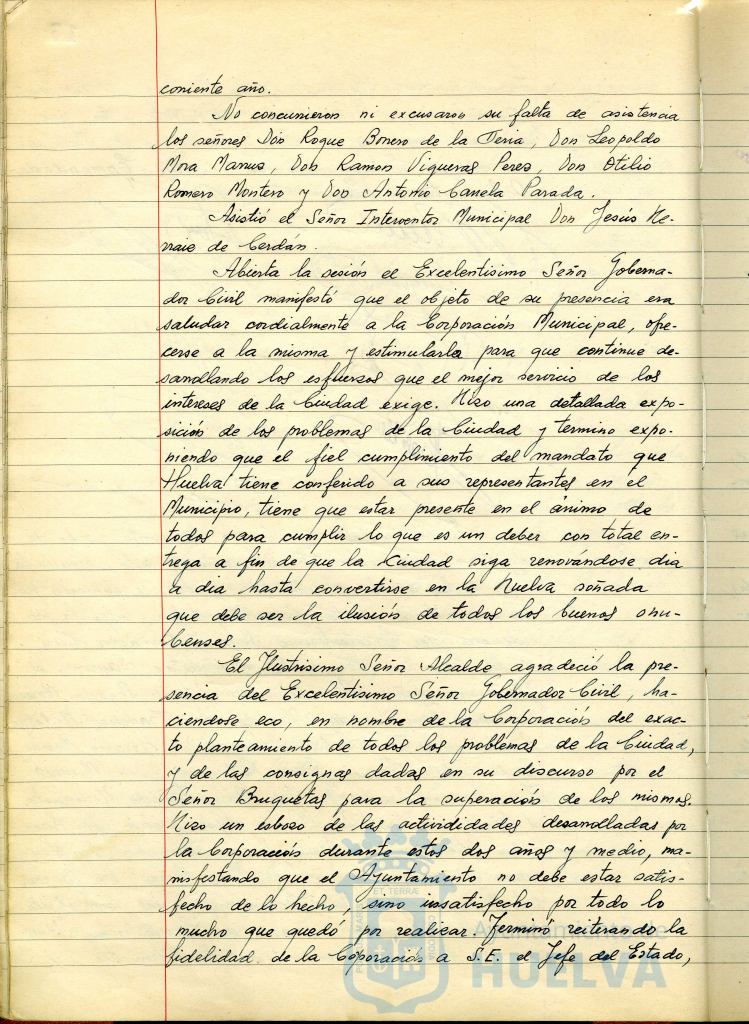 corriente año.
No concurrieron ni excusaron su falta de asistencia
los señores Don Roque Borrero de la Feria, Don Leopoldo
Mora Marrus, Don Ramon Vigueras Peres, Don Otilio
Romero Montero y Don Antonio Canela Parada.
Asistió el Señor Interventor Municipal Don Jesús He-
rraie de Cerdán.
Abierta la sesión el Excelentisimo Señor Goberna-
dor Civil manifestó que el objeto de su presencia era
saludar cordialmente a la Corporación Municipal, ofre-
cerse a la misma y estimularla para que continue de-
sarrollando los esfuersos que el mejor servicio de los
intereses de la Ciudad exige. Hiso una detallada expo-
sición de los problemas de la Ciudad y termino expo-
niendo que el fiel cumplimiento del mandato que
Huelva tiene conferido a sus representantes en el
Municipio, tiene que estar presente en el ánimo de
todos para cumplir lo que es un deber con total en-
trega a fin de que la Ciudad siga renovándose dia
a dia hasta convertirse en la Huelva soñada
que debe ser la ilusión de todos los buenos onu-
benses.
El Ilustrisimo Señor Alcalde agradeció la pre-
sencia del Excelentisimo Señor Gobernador Civil, ha-
ciendose eco, en nombre de la Corporación del exac-
to planteamiento de todos los problemas de la Ciudad,
y de las consignas dadas en su discurso por el
Señor Bruquetas para la superación de los mismos.
Hiso un esboso de las activididades desarrolladas por
la Corporación durante estos dos años y medio, ma-
nifestando que el Ayuntamiento no debe estar satis-
fecho de lo hecho, sino insatisfecho por todo lo
mucho que quedó por realizar. Terminó reiterando la
fidelidad de la Coporación a S.E. el Jefe del Estado,
Ayuntamiento de
HUELVA